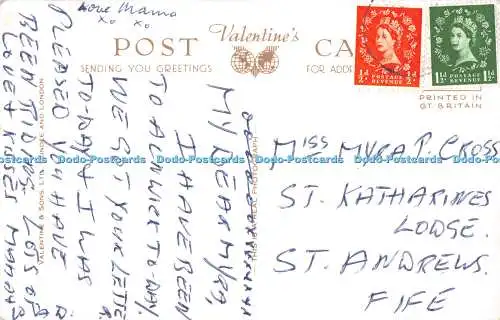 love Mama
xo xo.
Valentine's
POST CA
SENDING YOU GREETINGS
FOR ADD
½D ½D
POSTAGE
REVENUE
1½D 1½D
POSTAGE
REVENUE
PRINTED IN
GT BRITAIN
VALENTINE & SONS LTD., DUNDEE AND LONDON
THIS IS A REAL PHOTOGRAPH
MY DEAR MYRA,
I HAVE BEEN
TO ALNWICK TO-DAY.
WE GOT YOUR LETTER
TO-DAY I WAS
PLEASED YOU HAVE
BEEN TIDY LOTS OF
LOVE & KISSES MAMA
MISS MYRA P. CROSS
ST. KATHARINES
LODGE.
ST. ANDREWS.
FIFE
Dodo-Postcards Dodo-Postcards Dodo-Postcards